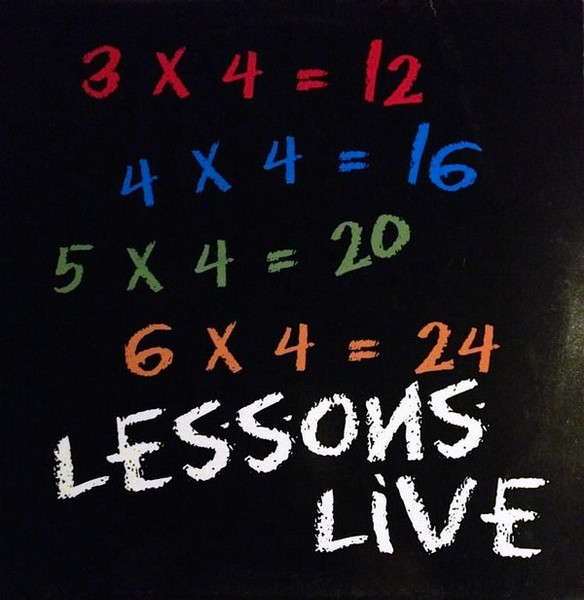 3 X 4 = 12
4 X 4 = 16
5 X 4 = 20
6 X 4 = 24
LESSONS
LiVE